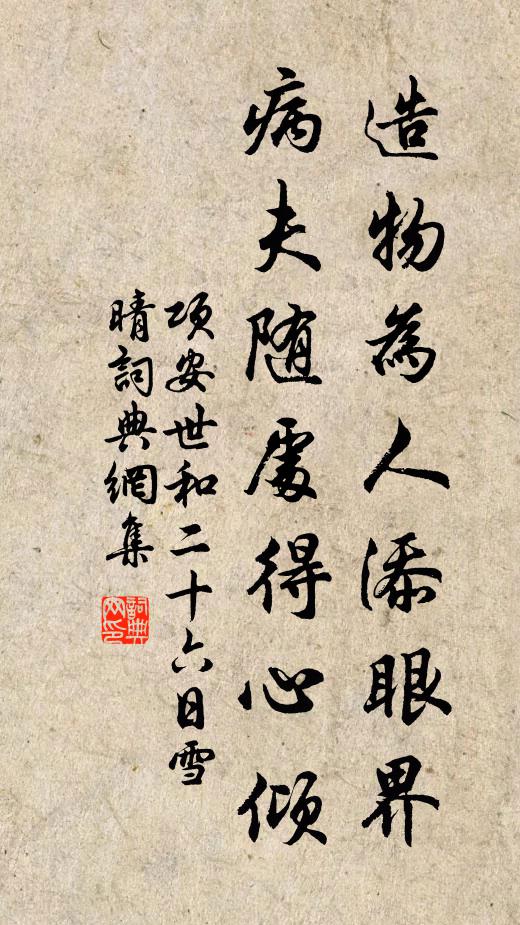 造物為人添眼界
病夫随處得心傾
項安世和二十六日雪
晴詞典網集
詞典
网印